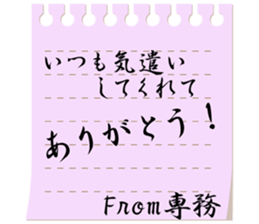 いつも気遣い
してくれて
ありがとう!
From専務